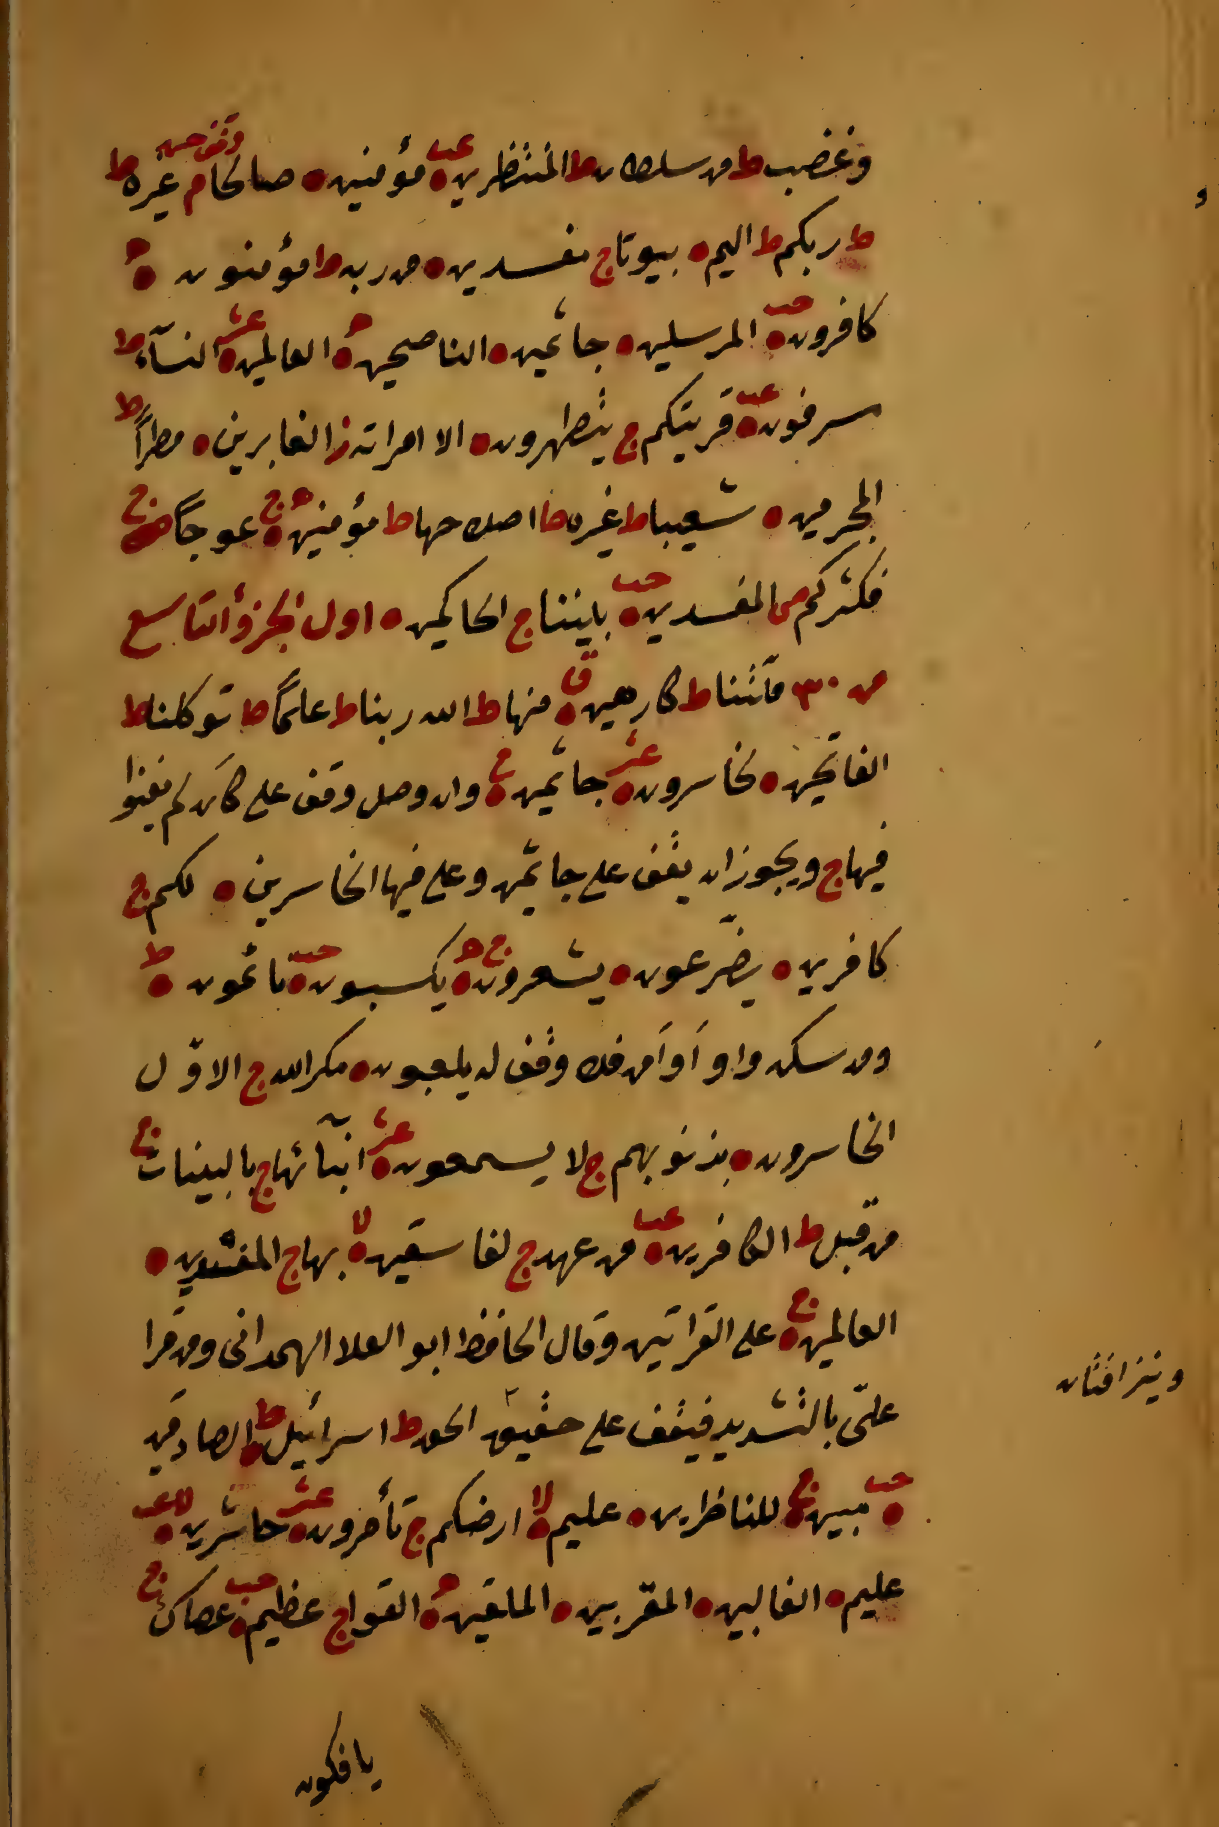 وغضب ط من سلطان ط المنتظرين عب مؤمنين صالحا م وقف حسن غيره ط
ط ربكم ط اليم بيوتا ج مفسدين من ربه ط مؤمنون ه
كافرون حب المرسلين جاثمين الناصحين ه العالمين عشر النسآء ط
مسرفون عب قريتكم ج يتطهرون الا امراته ز الغابرين مطراً ط
المجرمين شعيبا ط غيره ط اصلاحها ط مؤمنين ه ج عوجاً ج
فكثركم ص المفسدين حب بيننا ج الحاكمين اول الجزؤ التاسع
من ٣٠ ملتنا ط كارهين ق منها ط الله ربنا ط علماً ط توكلنا ط
الفاتحين لخاسرون عشر جاثمين ج وان وصل وقف على كأن لم يغنوا
فيها ج ويجوز ان يقف على جاثمين وعلى فيها الخاسرين لكم ج
كافرين يضّرعون يشعرون ج ه يكسبون حب نائمون ط
ومن سكن واو اَوَاَمن فلا وقف له يلعبون مكر الله ج الاوّل
الخاسرون بذنوبهم ج لا يسمعون عشر انبآئها ج بالبينات ج
من قبل ط الكافرين عب من عهد ج لفاسقين لا بها ج المفسدين
العالمين ج على القراتين وقال الحافظ ابو العلا الهمدانى ومن قرا
علىّ بالتشديد فيقف على حقيق الحق ط اسرائيل ط الصادقين
حب مبين ج للناظرين عليم لا ارضكم ج تأمرون عشر حاشرين لا عب
عليم الغالبين المقرّبين الملقين ه القوا ج عظيم حب عصاك ج
يافكون